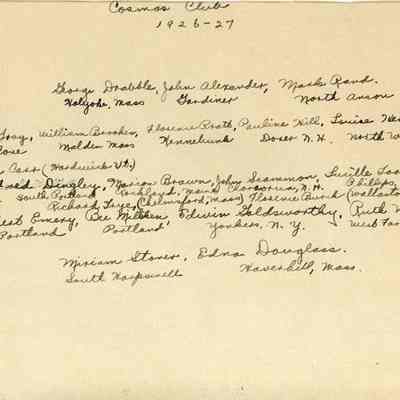 Cosmos Club
1926-27
George Drabble, John Alexander, Mark Rand.
Holyoke, Mass Gardiner North Anson
Gray, William Brookes, Florence Pratt, Pauline Hill, Louise
Malden Mass Kennebunk Dover N.H. North
Carr (Hardwick Vt.)
Dingley, Marion Brown, John Scammon, Lucille
South Portland Rockland, Maine N.H. Phillips
Richard Chelmsford, Mass) Florence Burck (
Emery, Bee Milliken, Edwin Goldsworthy, Ruth
Portland Portland Yonkers, N.Y. West
Miriam Stover, Edna Douglass.
South Harpswell Haverhill, Mass.